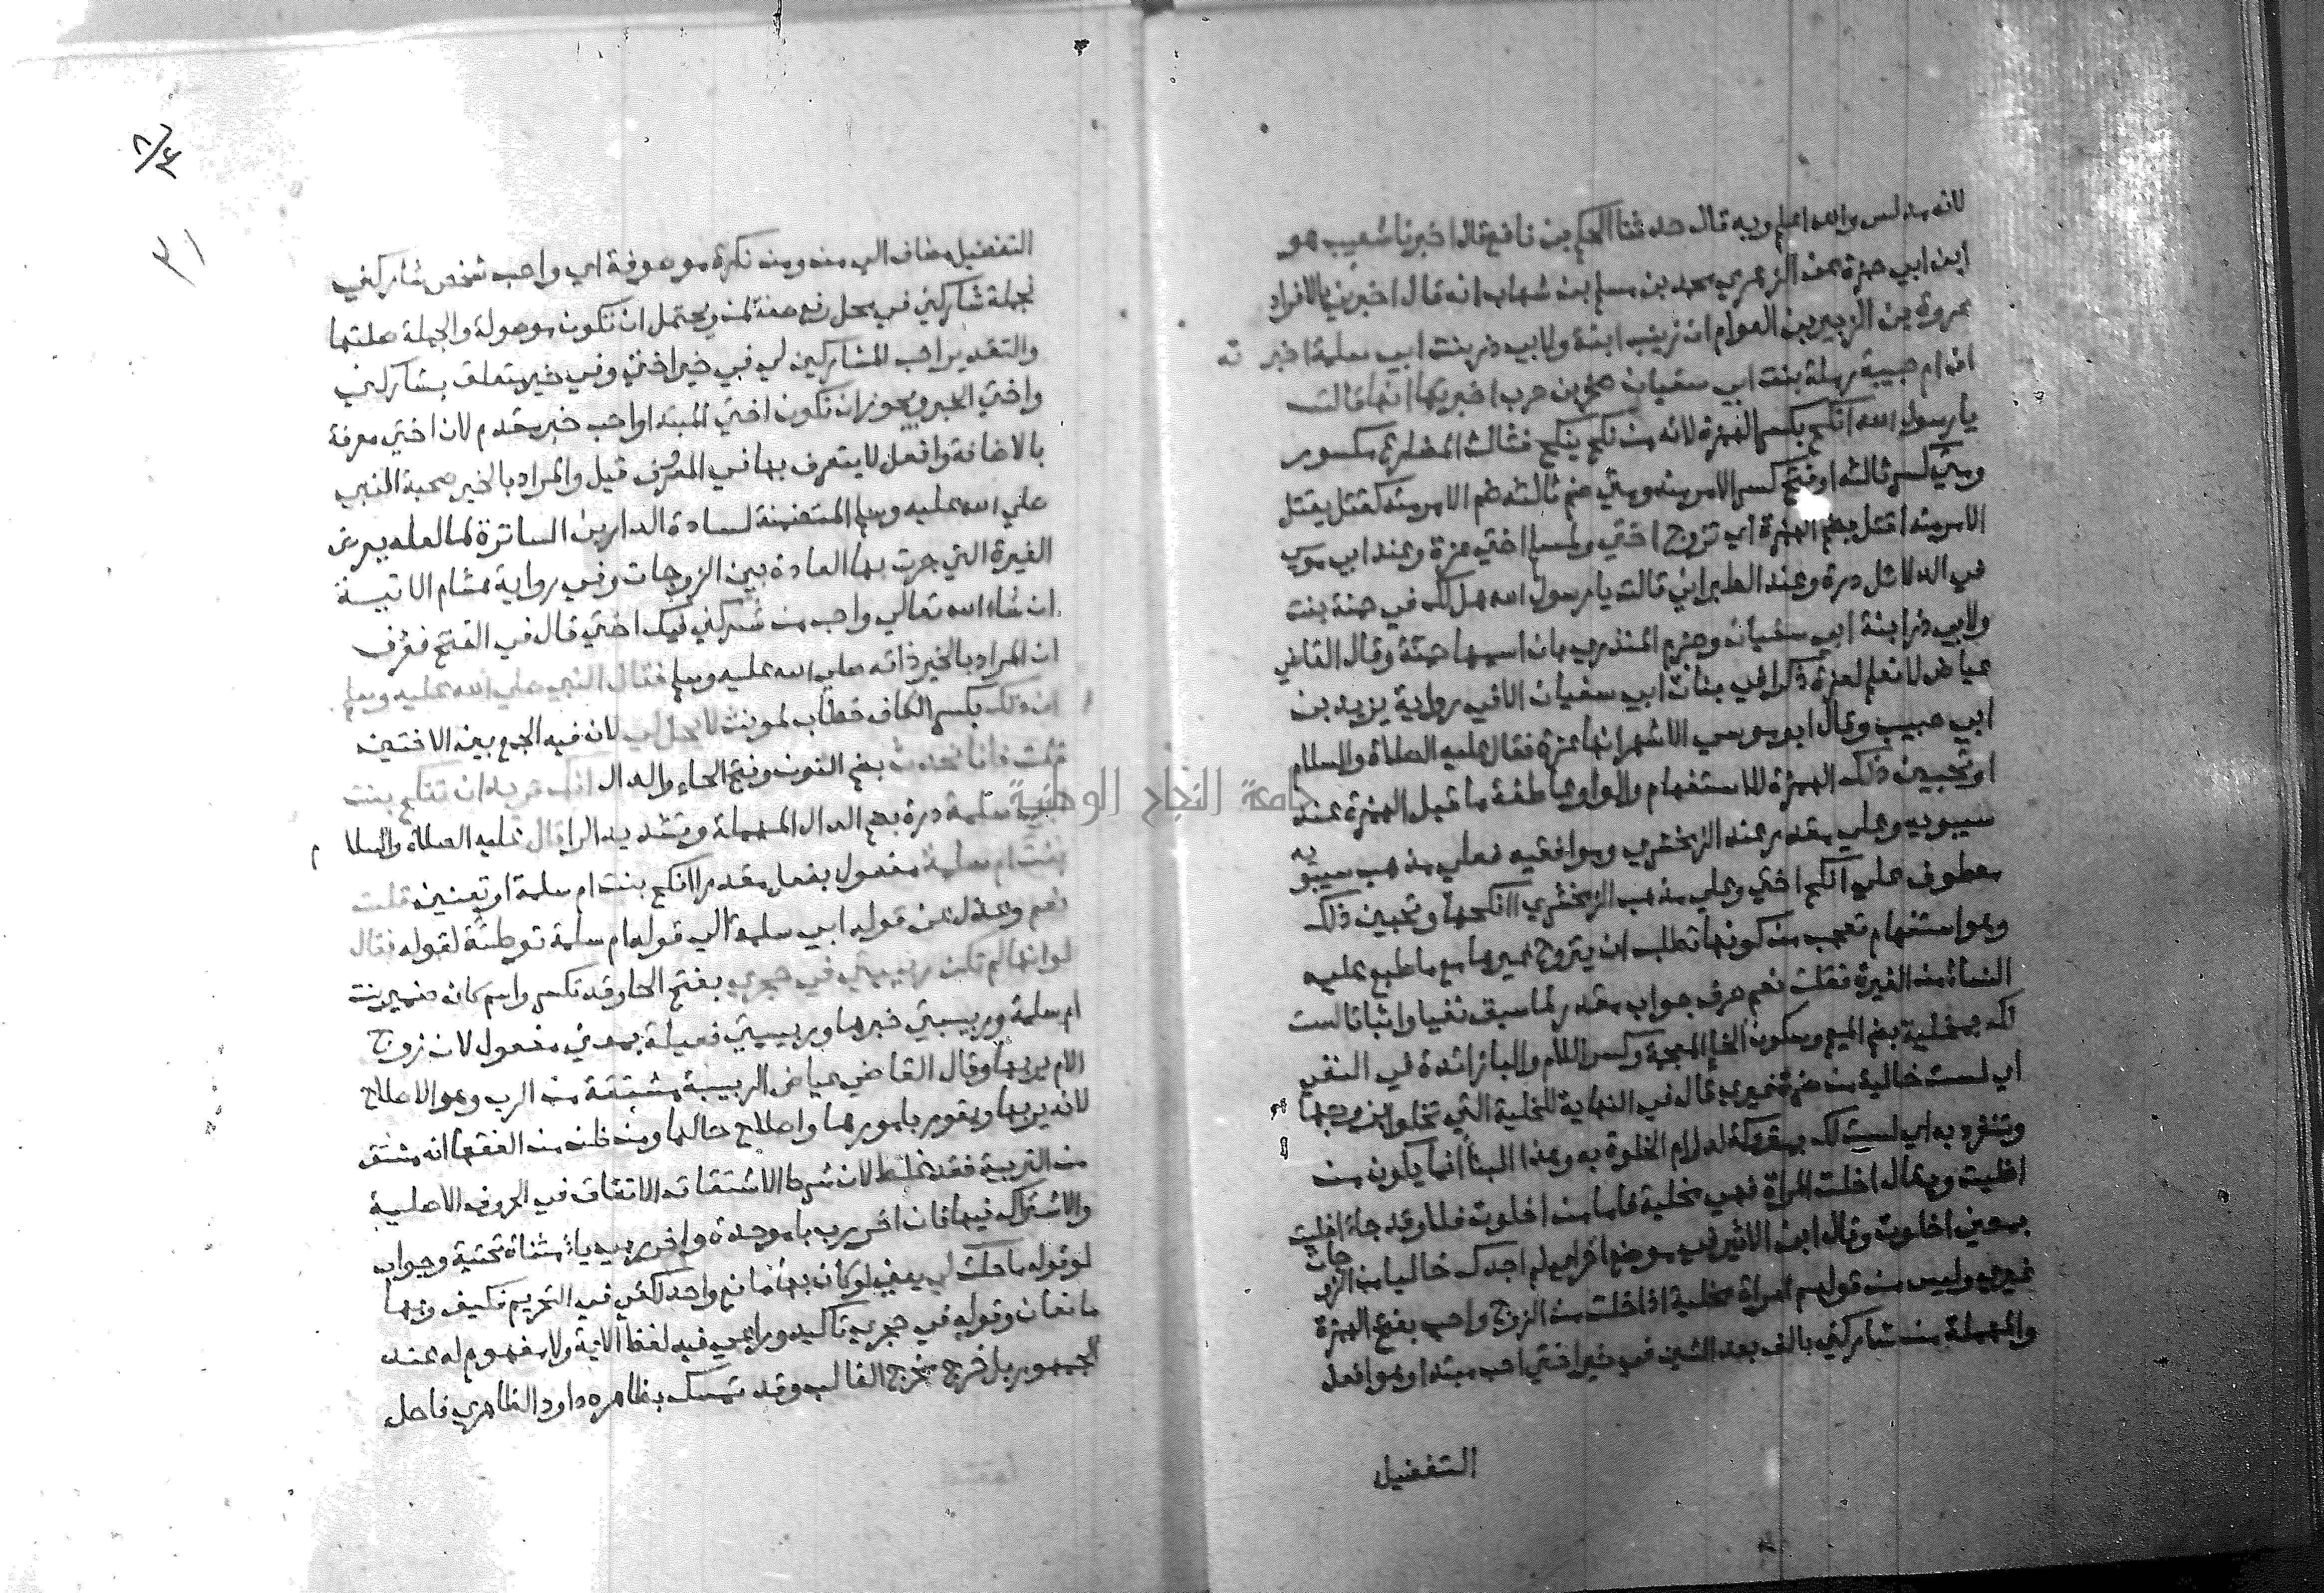 لانه مدلس والله اعلم وبه قال حدثنا الحكم بن نافع قال اخبرنا شعيب هو
ابن ابي حمزة عن الزهري محمد بن مسلم بن شهاب انه قال اخبرني بالافراد
عروة بن الزبير بن العوام ان زينب ابنة ولابي ذر بنت ابي سلمة اخبر ته
ان ام حبيبة رملة بنت ابي سفيان صخر بن حرب اخبرتها انها قالت
يا رسول الله انكح بكسر الهمزة لانه من نكح ينكح فثالث المضارع مكسور
ومتي كسر ثالثه او فتح كسر الامر منه ومتي ضم ثالثه ضم الامر منه كقتل يقتل
الامر منه اقتل بضم الهمزة اي تزوج اختي ولمسلم اختي عزة وعند ابي موسي
في الدلائل درة وعند الطبراني قالت يا رسول الله هل لك في حمنة بنت
ولابي ذر ابنة ابي سفيان وجزم المنذري بان اسمها حمنة وقال القاضي
عياض لا نعلم لعزة ذكرا في بنات ابي سفيان الا في رواية يزيد بن
ابي حبيب وقال ابو موسي الاشهر انها عزة فقال عليه الصلاة والسلام
او تحبين ذلك الهمزة للاستفهام والواو عاطفة ما قبل الهمزة عند
سيبويه وعلي مقدر عند الزمخشري وموافقيه فعلي مذهب سيبو يه
معطوف علي انكح اختي وعلي مذهب الزمخشري اانكحها وتحبين ذلك
وهو استفهام تعجب من كونها تطلب ان يتزوج غيرها مع ما طبع عليه
النساء من الغيرة فقلت نعم حرف جواب مقدر لما سبق نفيا واثباتا لست
لك بمخلية بضم الميم وسكون الخاء المعجمة وكسر اللام والبا زائدة في النفي
اي لست خالية من ضرة غيري قال في النهاية المخلية التي تخلو بزوجها
وتنفرد به اي لست لك بمتروكة لدوام الخلوة به وهذا البناء انما يكون من
اخليت ويقال اخلت المراة فهي مخلية فاما من اخلوت فلا وقد جاء اخليت
بمعني اخلوت وقال ابن الاثير في موضع اخر اي لم اجدك خاليا من الزو جات
غيري وليس من قولهم امراة مخلية اذا خلت من الزوج واحب بفتح الهمزة
والمهملة من شاركني بالف بعد الشين في خير اختي احب مبتدا وهو افعل
التفضيل
التفضيل مضاف الي من ومن نكرة موصوفة اي واحب شخص شاركني
فجملة شاركني في محل رفع صفة لمن ويحتمل ان تكون موصولة والجملة صلتها
والتقدير احب المشاركين لي في خير اختي وفي خير متعلق بشاركني
واختي الخبر ويجوز ان تكون اختي المبتدا واحب خبر مقدم لان اختي معرفة
بالاضافة وافعل لا يتعرف بها في المعرف قيل والمراد بالخير صحبة النبي
صلي الله عليه وسلم المتضمنة لسادة الدارين الساترة لما لعله يعرض
الغيرة التي جرت بها العادة بين الزوجات وفي رواية هشام الاتية
ان شاء الله تعالي واحب من شركني فيك اختي قال في الفتح فعرف
ان المراد بالخير ذاته صلي الله عليه وسلم فقال النبي صلي الله عليه وسلم
ان ذلك بكسر الكاف خطاب لمونث لا يحل لي لانه فيه الجمع بين الاختين
قلت فانا نحدث بضم النون وفتح الحاء والدال انك تريد ان تنكح بنت
ابي سلمة درة بضم الدال المهملة وتشديد الرا قال عليه الصلاة والسلا م
بنت ام سلمة مفعول بفعل مقدر اانكح بنت ام سلمة او تعنين قلت
نعم وعدل عن قوله ابي سلمة الي قوله ام سلمة توطئة لقوله فقال
لو انها لم تكن ربيبتي في حجري بفتح الحا وقد تكسر واسم كان ضمير بنت
ام سلمة وربيبتي خبرها وربيبتي فعيلة بمعني مفعول لان زوج
الام يربها وقال القاضي عياض الربيبة مشتقة من الرب وهو الاصلاح
لانه يربها ويقوم بامورها واصلاح حالها ومن ظن من الفقها انه مشتق
من التربية فقد غلط لان شرط الاشتقاق الاتفاق في الحروف الاصلية
والاشتراك فيها فان اخر رب باء موحدة واخر ربي ياء مثناة تحتية وجواب
لو قوله ما حلت لي يعني لو كان بها مانع واحد لكفي في التحريم فكيف وبها
مانعان وقوله في حجري تاكيد وراعي فيه لفظ الاية ولا مفهوم له عند
الجمهور بل خرج مخرج الغالب وقد تمسك بظاهره داود الظاهري فاحل
٣١
جامعة النجاح الوطنية